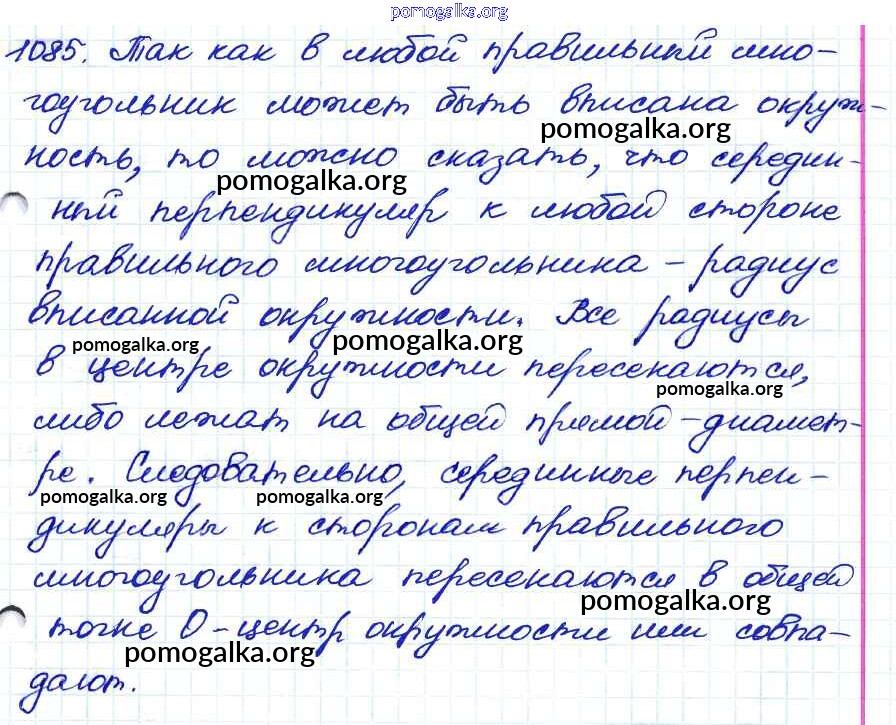 pomogalka.org
1085. Так как в любой правильный мно-
гоугольник может быть вписана окруж-
pomogalka.org
ность, то можно сказать, что середин-
pomogalka.org
ный перпендикуляр к любой стороне
правильного многоугольника - радиус
вписанной окружности. Все радиусы
pomogalka.org pomogalka.org
в центре окружности пересекаются,
pomogalka.org
либо лежат на общей прямой - диамет-
ре. Следовательно, серединные перпен-
pomogalka.org pomogalka.org
дикуляры к сторонам правильного
многоугольника пересекаются в общей
pomogalka.org
точке O - центр окружности или совпа-
pomogalka.org
дают.